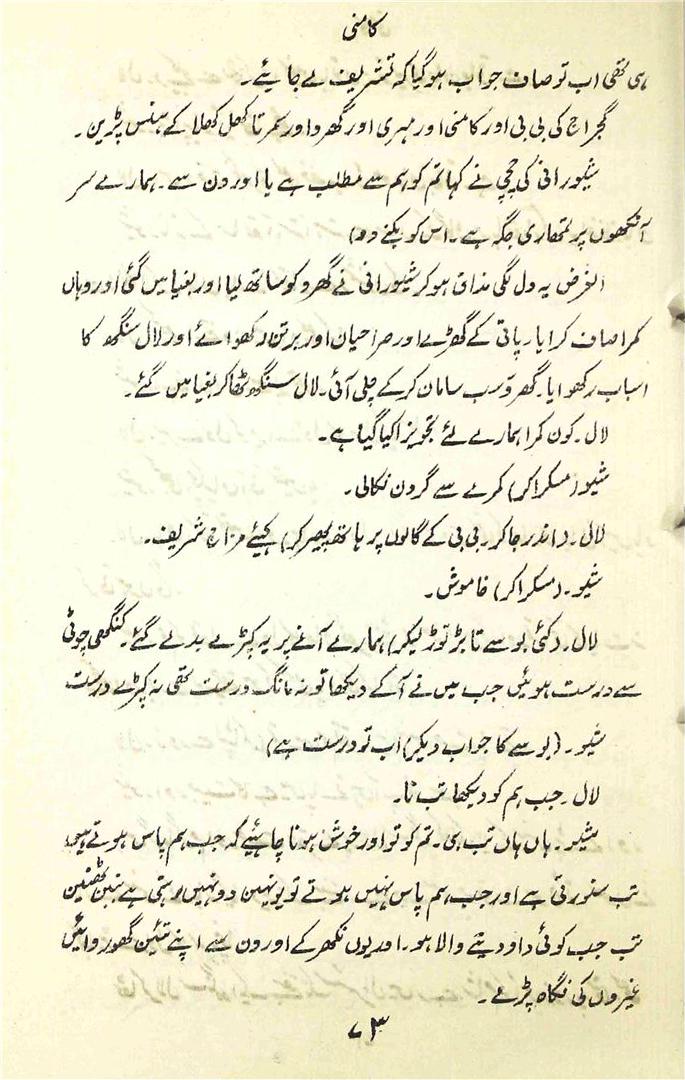 کامنی
ہی تھی اب تو صاف جواب ہوگیا کہ تشریف لے جائیے۔
گجراج کی بی بی اور کامنی اور مہری اور گھرو اور سمرتا کھل کھلا کے ہنس پڑین۔
شیورانی کی چچی نے کہا تم کو ہم سے مطلب ہے یا اور ون سے۔ ہمارے سر
آنکھوں پر تمھاری جگہ ہے۔ اس کو بکنے دو)
الغرض یہ دل لگی مذاق ہوکر شیورانی نے گھرو کو ساتھ لیا اور بغیا میں گئی اور وہاں
کمرا صاف کرایا۔ پانی کے گھڑے اور صراحیان اور برتن رکھوائے اور لال سنگھ کا
اسباب رکھوایا۔ گھرو سب سامان کرکے چلی آئی۔ لال سنگھ ٹھاکر بغیا میں گئے۔
لال۔ کون کمرا ہمارے لئے تجویز کیا گیا ہے۔
شیو (مسکراکر) کمرے سے گردن نکالی۔
لال۔ (اندر جاکر۔ بی بی کے گالوں پر ہاتھ پھیرکر) کہیئے مزاج شریف۔
شیو۔ (مسکراکر) خاموش۔
لال۔ (کئی بوسے تابڑ توڑ لیکر) ہمارے آنے پر یہ کپڑے بدلے گئے۔ کنگھی چوٹی
سے درست ہوئیں جب میں نے آکے دیکھا تو نہ مانگ درست تھی نہ کپڑے درست
شیو۔ (بوسے کا جواب دیکر) اب تو درست ہے)
لال۔ جب ہم کو دیکھا تب نا۔
شیو۔ ہاں ہاں تب ہی۔ تم کو تو اور خوش ہونا چاہئیے کہ جب ہم پاس ہوتے ہیں
تب سنورتی ہے اور جب ہم پاس نہیں ہوتے تو یونہین دونہیں رہتی ہے بنین ٹھنین
تب جب کوئی داد دینے والا ہو۔ اور یوں نکھر کے اورون سے اپنے تئین گھوروائیں
غیروں کی نگاہ پڑے۔
۷۳